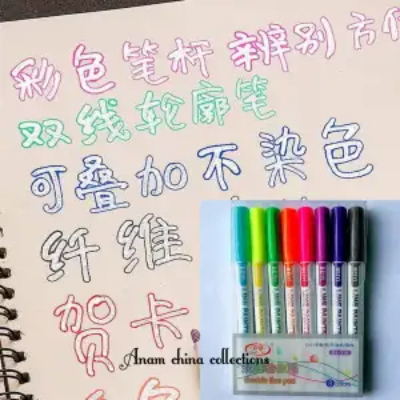 彩色笔杆辨别方便
双线轮廓笔
可叠加不染色
纤维
贺卡
Anam china collections